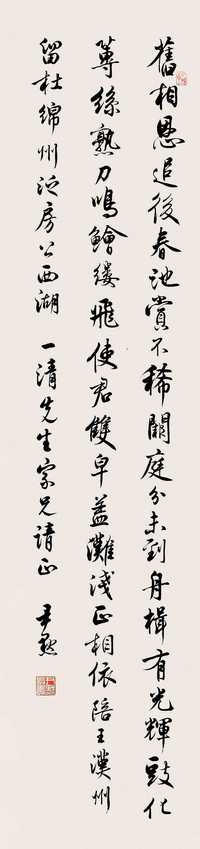 舊相恩追後春池賞不稀闕庭分未到舟楫有光輝豉化
蓴絲熟刀鳴鱠縷飛使君雙皁蓋灘淺正相依陪王漢州
留杜綿州泛房公西湖 一清先生家兄請正 尹默